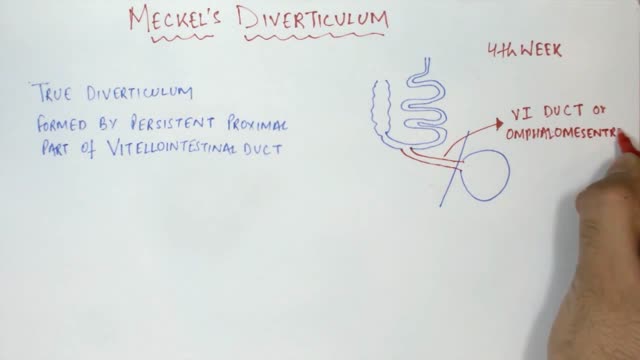 MECKEL'S DIVERTICULUM
4th WEEK
TRUE DIVERTICULUM
FORMED BY PERSISTENT PROXIMAL
PART OF VITELLOINTESTINAL DUCT
VI DUCT or
OMPHALOMESENTR